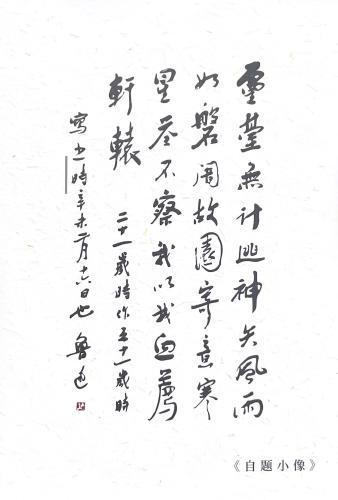 靈臺無計逃神矢風雨
如磐闇故園寄意寒
星荃不察我以我血薦
軒轅
二十一歲時作五十一歲時
寫之時辛未二月十六日也 魯迅
《自题小像》